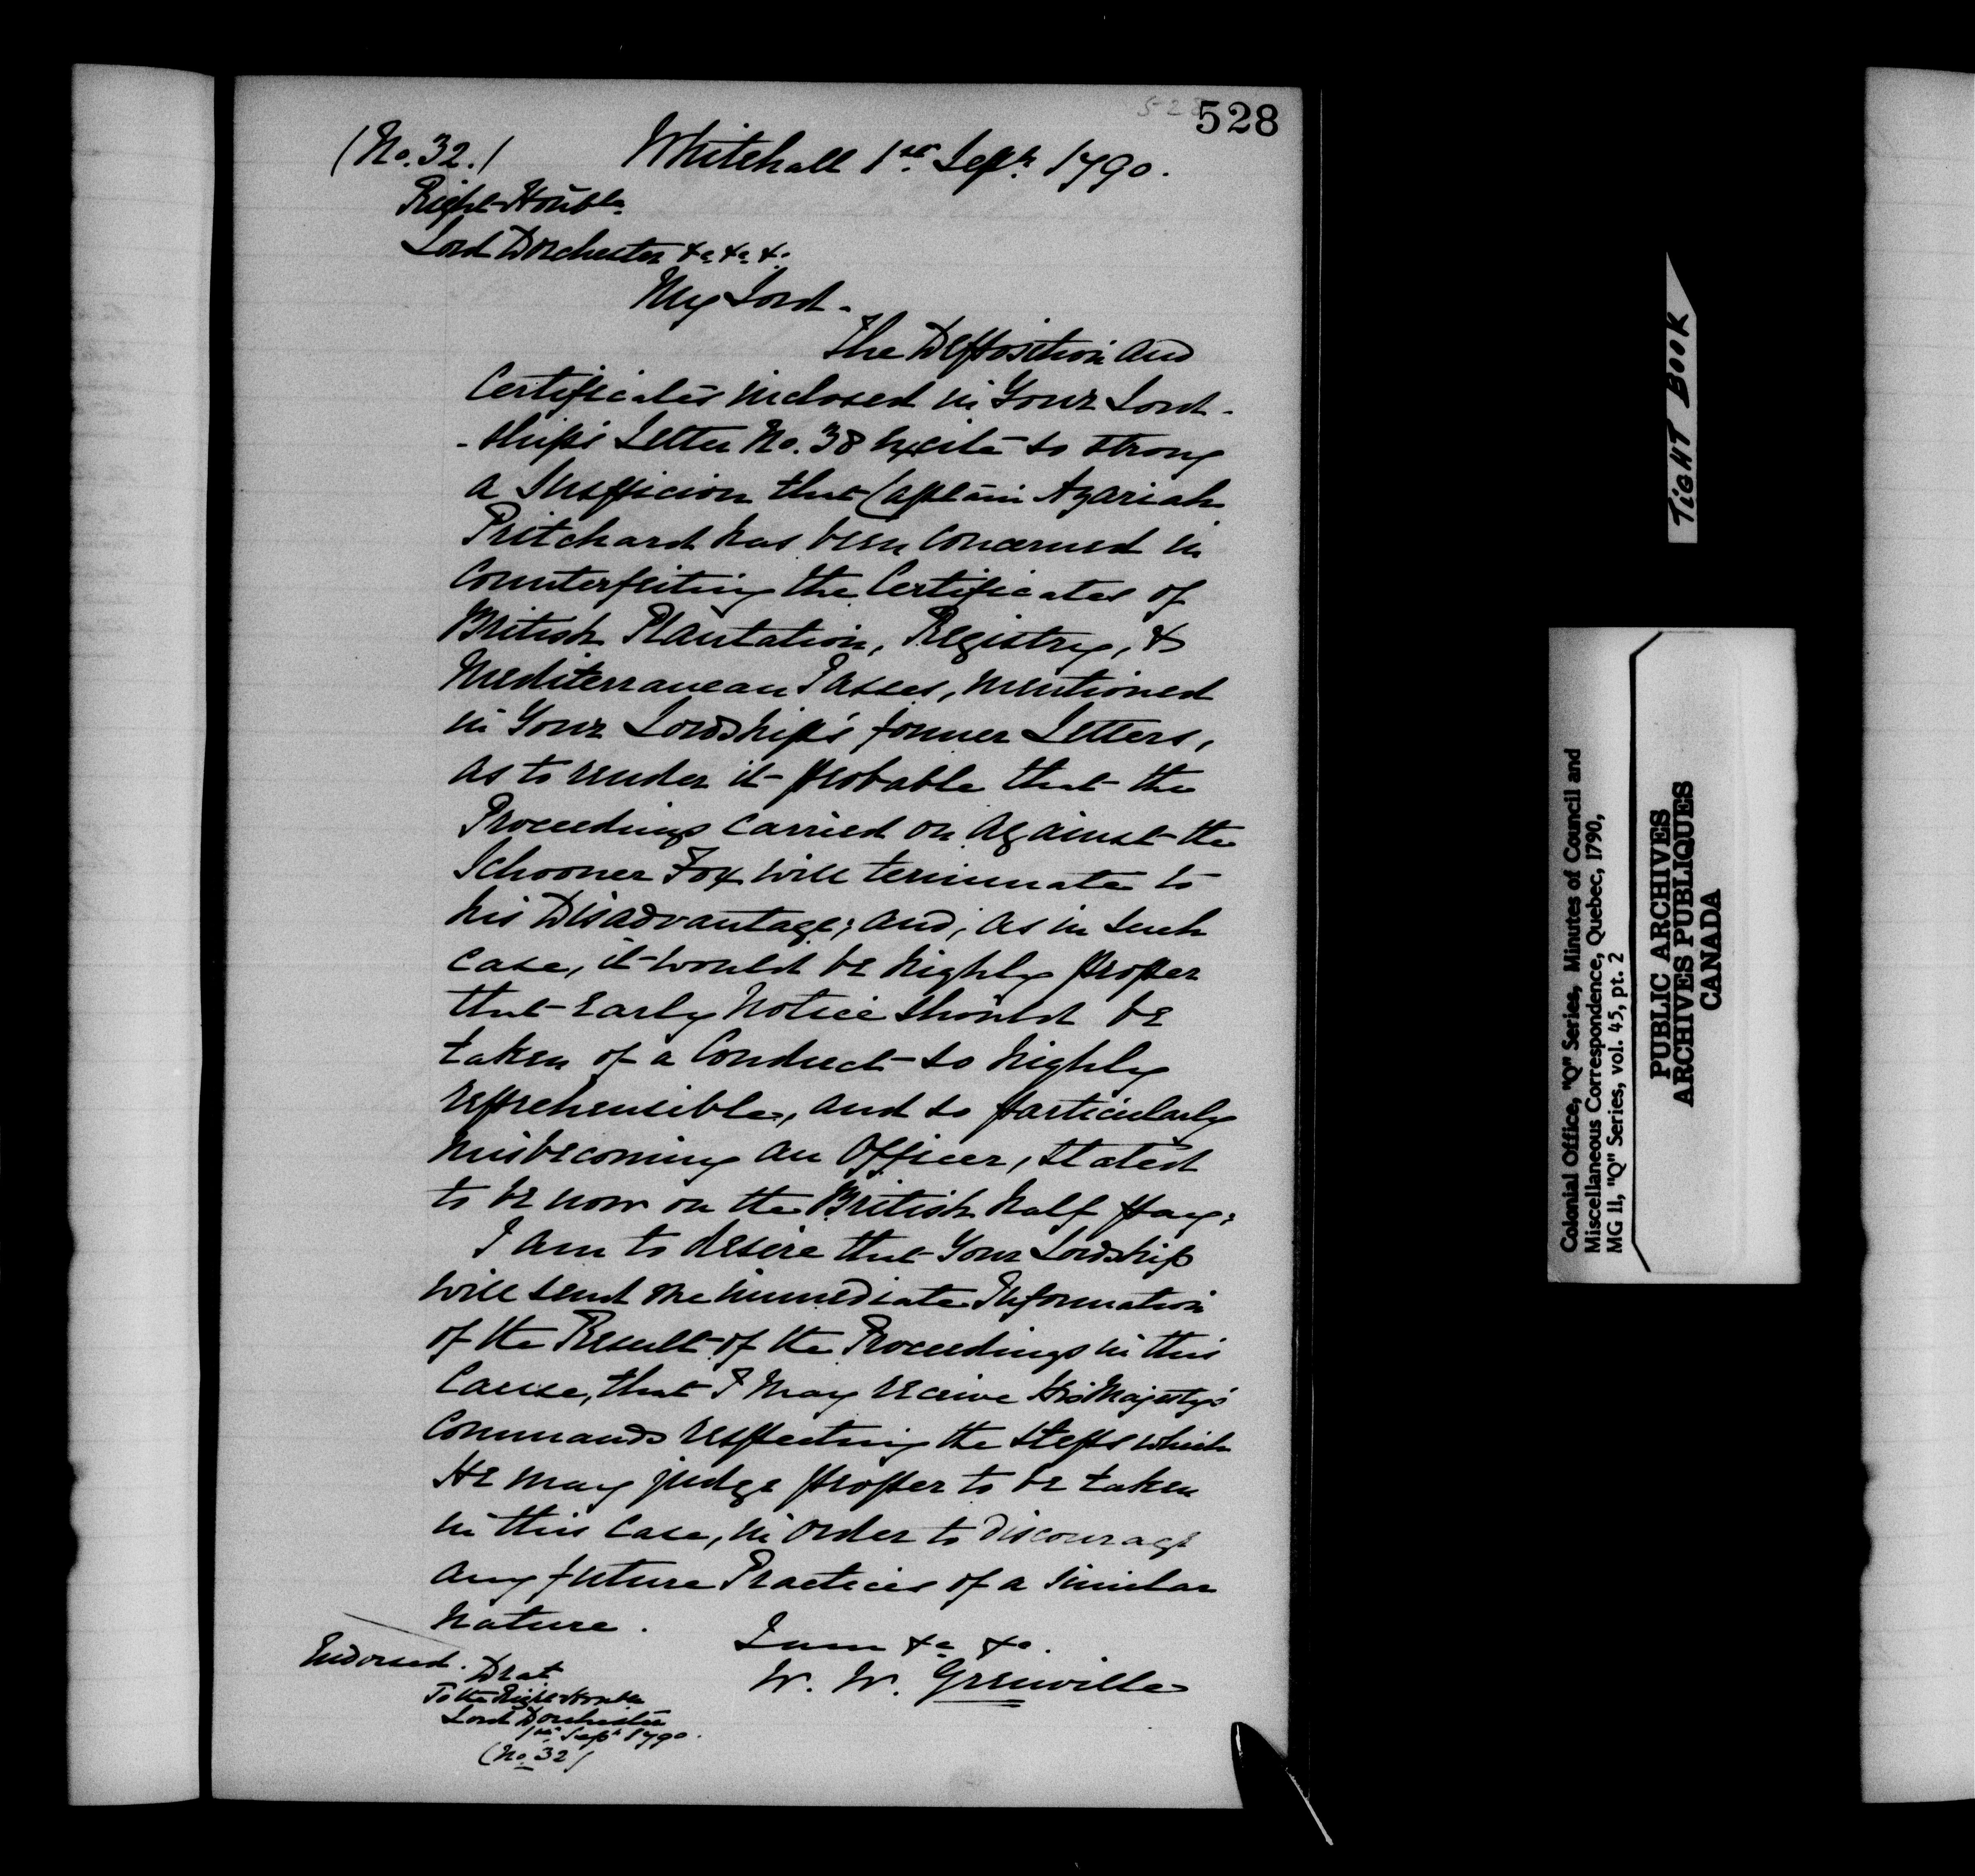 528
528
(No. 32.)
Whitehall 1st Septr 1790.
Right Honble
Lord Dorchester &c. &c. &c.
My Lord.
The Deposition and
Certificates inclosed in Your Lord-
-ship's Letter No. 38 excite so strong
a Suspicion that Captain Azariah
Pritchard has been concerned in
Counterfeiting the Certificates of
British Plantation, Registry, &
Mediterranean Passes, mentioned
in Your Lordship's former Letters,
as to render it probable that the
Proceedings carried on against the
Schooner Fox will terminate to
his Disadvantage; and, as in such
case, it would be highly proper
that early Notice should be
taken of a Conduct so highly
reprehensible, and so particularly
misbecoming an Officer, stated
to be now on the British half pay;
I am to desire that Your Lordship
will send me immediate Information
of the Result of the Proceedings in this
Cause, that I may receive His Majesty's
Commands respecting the Steps which
He may judge proper to be taken
in this Case, in order to discourage
any future Practices of a similar
nature.
I am &c &c.
W. W. Grenville
Endorsed. Drat
To the Right Honble
Lord Dorchester
1st Sept 1790.
(No. 32)
TIGHT BOOK
Colonial Office, "Q" Series, Minutes of Council and
Miscellaneous Correspondence, Quebec, 1790,
MG 11, "Q" Series, vol. 45, pt. 2
PUBLIC ARCHIVES
ARCHIVES PUBLIQUES
CANADA